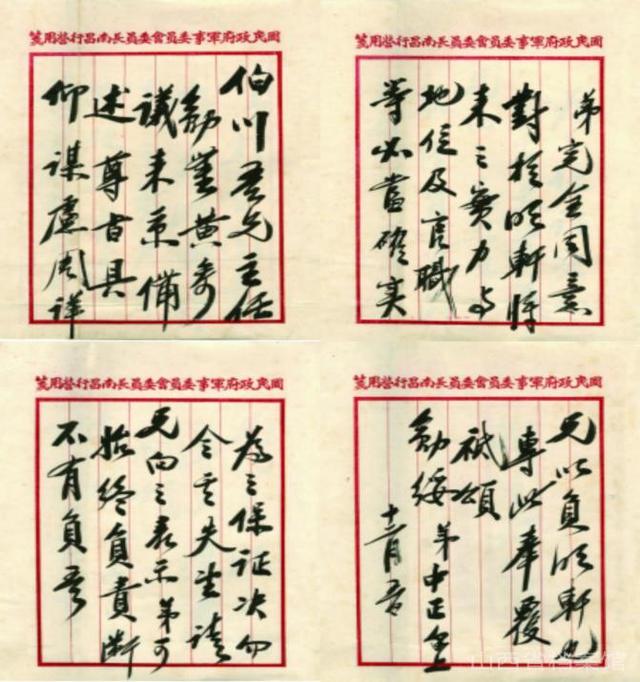 國民政府軍事委員會委員長南昌行營用箋
伯川吾兄主任
勛鑒黃參
議來京備
述尊旨具
仰謀慮周詳
國民政府軍事委員會委員長南昌行營用箋
弟完全同意
對於明軒將
來之實力与
地位及官職
等必當確實
國民政府軍事委員會委員長南昌行營用箋
為之保証決勿
令其失望請
兄向之表示弟可
始終負責斷
不有負吾
國民政府軍事委員會委員長南昌行營用箋
兄以負明軒也
專此奉覆
祗頌
勛綏 弟中正
山西省档案馆